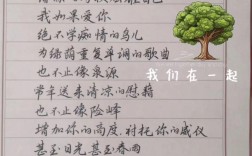 我如果爱你
绝不学痴情的鸟儿
为绿荫重复单调的歌曲
也不止像泉源
常年送来清凉的慰藉
也不止像险峰
增加你的高度,衬托你的威仪
甚至日光 甚至春雨
我们在一起